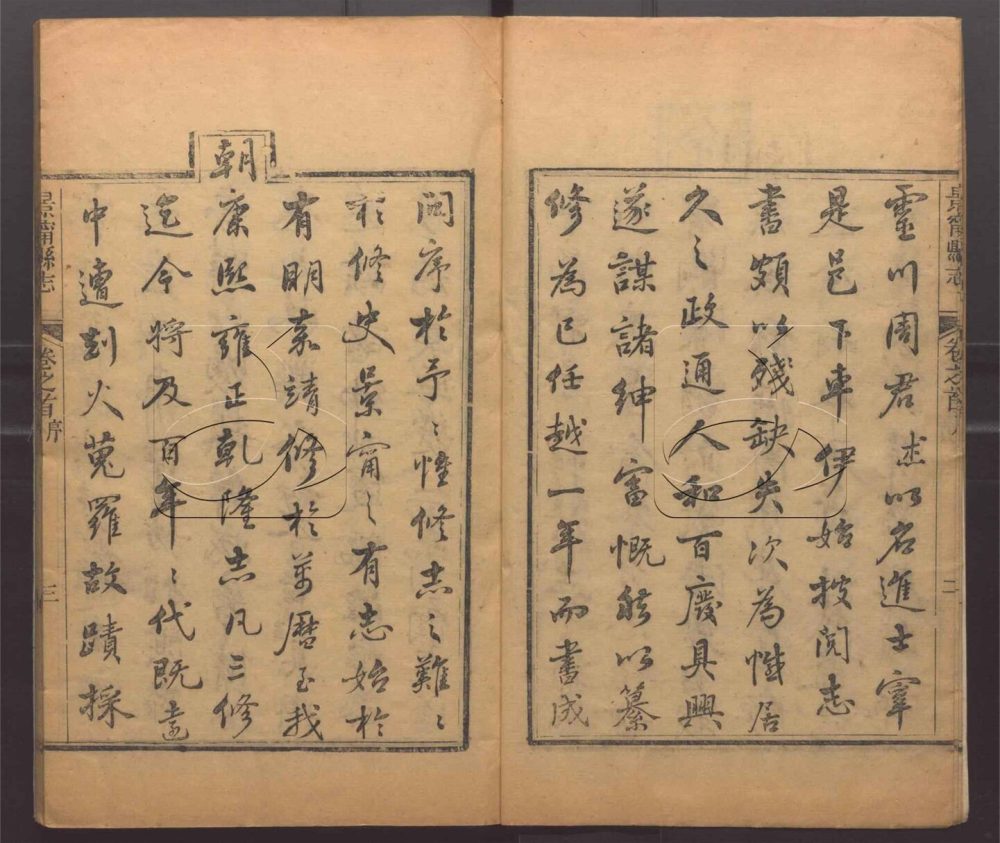 靈川周君杰以名進士宰
是邑下車伊始披閱志
書頗以殘缺失次為憾居
久之政通人和百廢具興
遂謀諸紳富慨然以纂
修為己任越一年而書成
問序於予〻惟修志之難〻
於修史景甯之有志始於
有明嘉靖修於萬曆至我
朝
康熙雍正乾隆志凡三修
迄今將及百年〻代既遠
中遭刦火蒐羅故蹟採
景甯縣志
卷之首序
二
景甯縣志
卷之首序
三